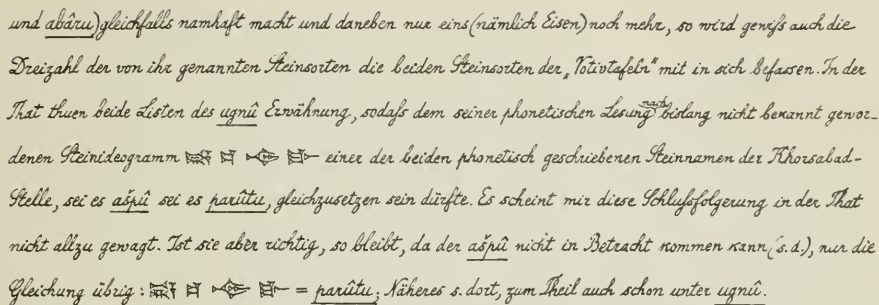 und abâru) gleichfalls namhaft macht und daneben nur eins (nämlich Eisen) noch mehr, so wird gewiſs auch die
Dreizahl der von ihr genannten Steinsorten die beiden Steinsorten der „Votivtafeln" mit in sich befassen. In der
That thuen beide Listen des ugnû Erwähnung, sodaſs dem seiner phonetischen Lesung nach bislang nicht bekannt gewor-
denen Steinideogramm einer der beiden phonetisch geschriebenen Steinnamen der Khorsabad-
Stelle, sei es ašpû sei es parûtu, gleichzusetzen sein dürfte. Es scheint mir diese Schluſsfolgerung in der That
nicht allzu gewagt. Ist sie aber richtig, so bleibt, da der ašpû nicht in Betracht kommen kann, (s. d.), nur die
Gleichung übrig: = parûtu; Näheres s. dort, zum Theil auch schon unter ugnû.